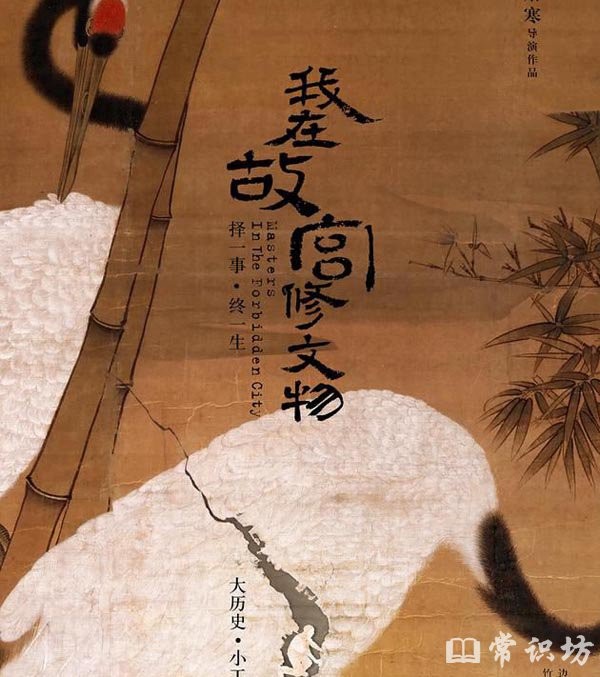 寒 导演作品
我在故宫修文物
Masters
In The Forbidden City
择一事·终一生
大历史·小工
边
竹
常识坊